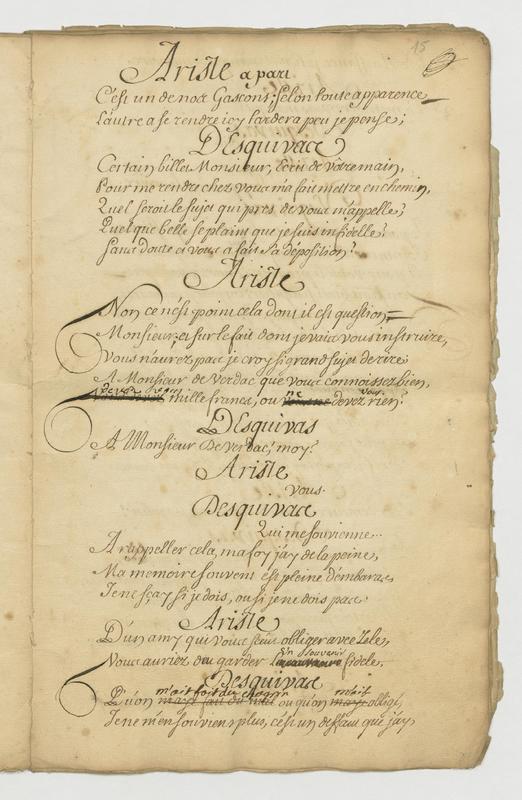 15
Ariste a part
C'est un de nos Gascons; selon toute apparence
L'autre a se rendre icy tardera peu je pense;
DEsquivas
Certain billet Monsieur, écrit de vôtre main,
Pour me rendre chez vous m'a fait mettre en chemin,
Quel seroit le sujet qui pres de vous m'appelle?
Quelque belle se plaint que je suis infidelle?
Sans doute et vous a fait sa déposition?
Ariste
Non ce n'est point cela dont il est question,
Monsieur, et sur le fait dont je vais vous instruire,
Vous n'aurez pas je croy si grand sujet de rire
A Monsieur de Verdac que vous connoissez bien,
devez mille francs, ou ne devez vous rien?
DEsquivas
A Monsieur De Verdac, moy?
Ariste
Vous.
Desquivas
Qui me souvienne..
A rappeller cela, ma foy j'ay de la peine,
Ma memoire souvent est pleine d'embaras,
Je ne sçay si je dois, ou si je ne dois pas.
Ariste
D'un amy qui vous sçeut obliger avec zele,
Vous auriez deu garder un souvenir fidele.
Desquivas
Qu'on m'ait fait du chagrin ou qu'on m'ait obligé,
Je ne m'en souviens plus, c'est un deffaut que j'ay,